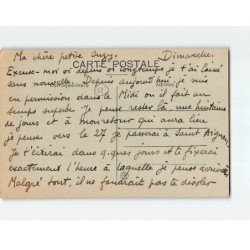 Ma chère petite Suzy. Dimanche.
CARTE POSTALE
Excuse-moi si depuis si longtemps je t'ai laissé
sans nouvelle. Depuis aujourd'hui, je suis
en permission dans le Midi où il fait un
temps superbe. Je pense rester là, une huitaine
de jours et à mon retour qui aura lieu
je pense vers le 27 je passerai à Saint Aignan,
je t'écrirai dans q.ques jours et te fixerai
exactement l'heure à laquelle je pense arriver.
Malgré tout, il ne faudrait pas te désoler